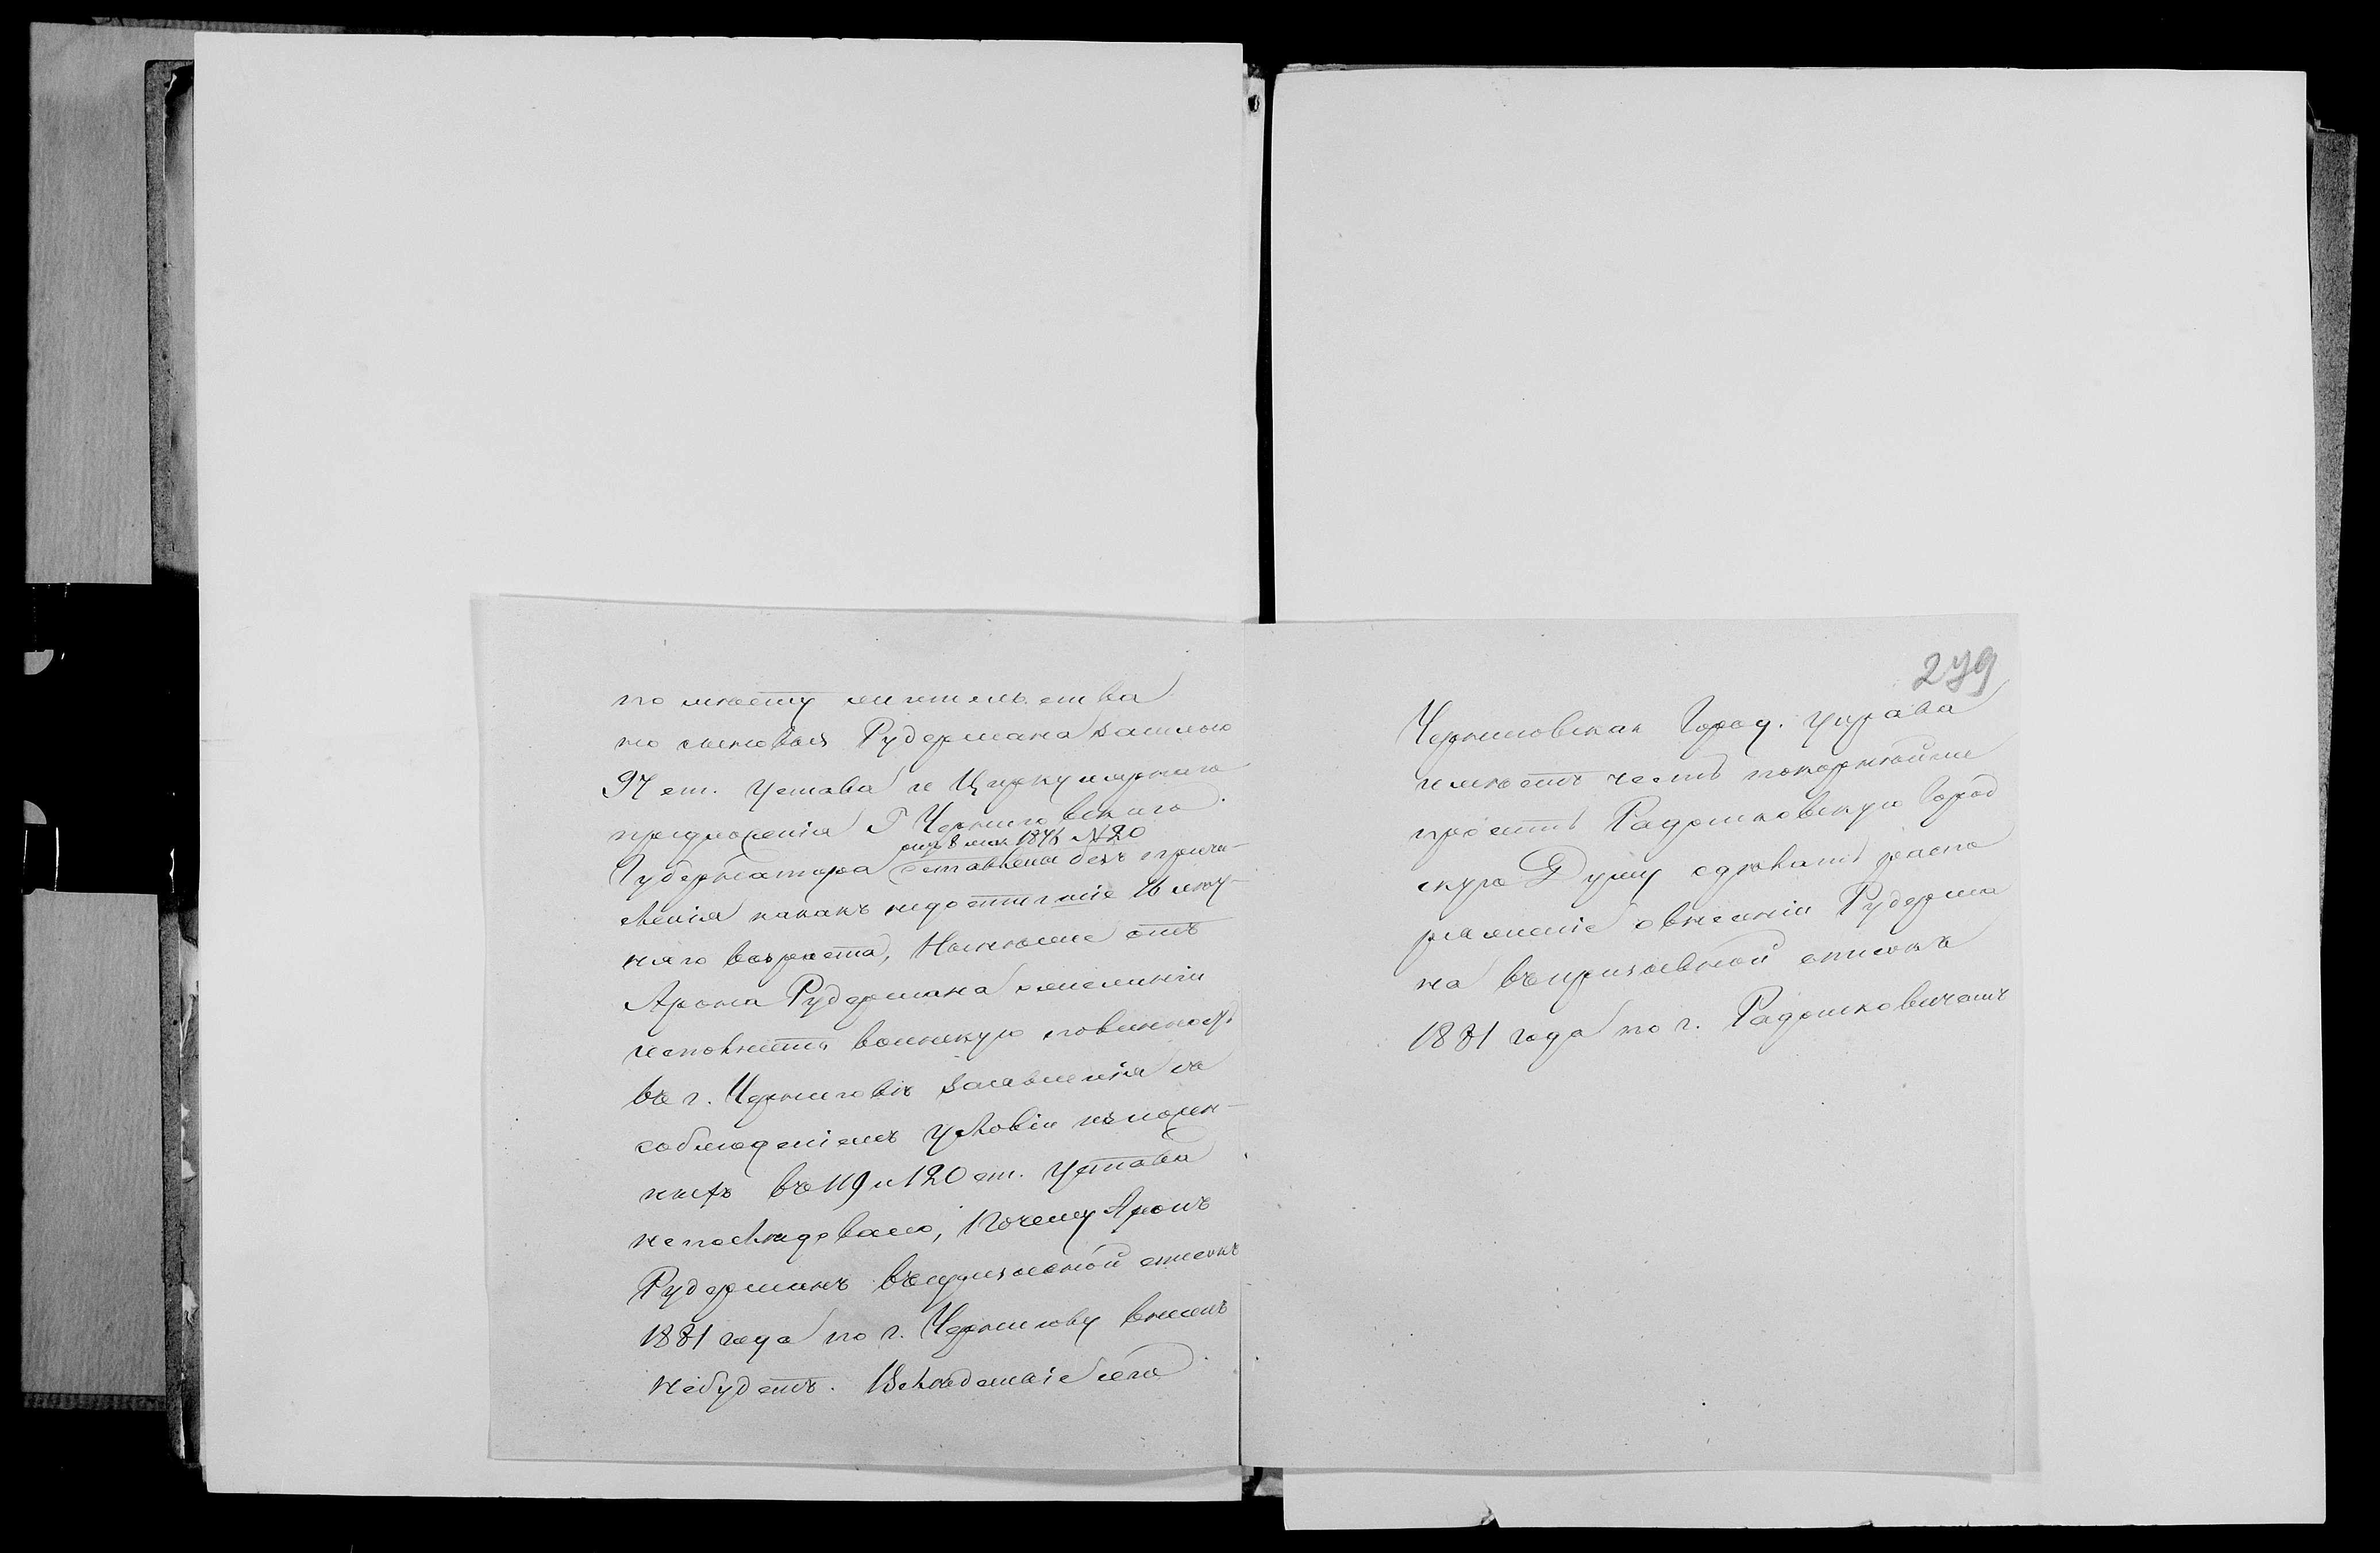 по мѣсту жительства
но сыновья Рудермана за силою
97 ст. Устава и Циркулярнаго
предложенія Г Черниговскаго
отъ 8 мая 1876 №20
Губернатора оставлены безъ причи-
сленія какъ недостигшіе 16 лѣт-
няго возраста, Нынѣже отъ
Арона Рудермана о желаніи
исполнить воинскую повинность
въ г. Черниговѣ заявленія съ
соблюденіемъ условій изложен-
ныхъ въ 119 и 120 ст. Устава
непослѣдовало, Почему Аронъ
Рудерманъ въ призывной списокъ
1881 года по г. Чернигову внесенъ
небудетъ. Вслѣдствіе сего
279
Черниговская Город. Управа
имѣетъ честь покорнѣйше
просить Радошковскую Город
скую Думу сдѣлать распо
ряженіе о внесеніи Рудерма
на въ призывной списокъ
1881 года по г. Радошковичамъ